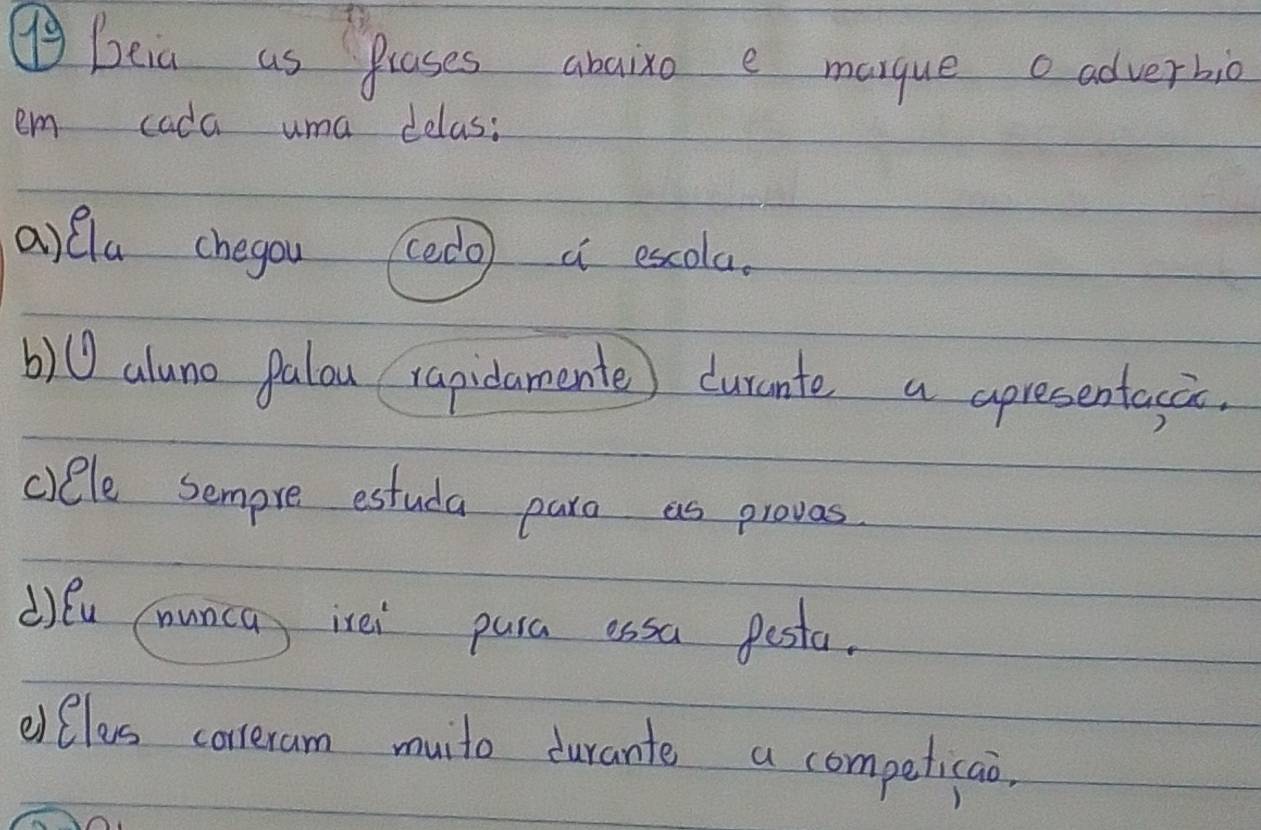 1º Leia as frases abaixo e marque o adverbio
em cada uma delas:
a) Ela chegou cedo á escola.
b) O aluno falou rapidamente durante a apresentação.
c) Ele sempre estuda para as provas.
d) Eu nunca irei para essa festa.
e) Eles correram muito durante a competição.